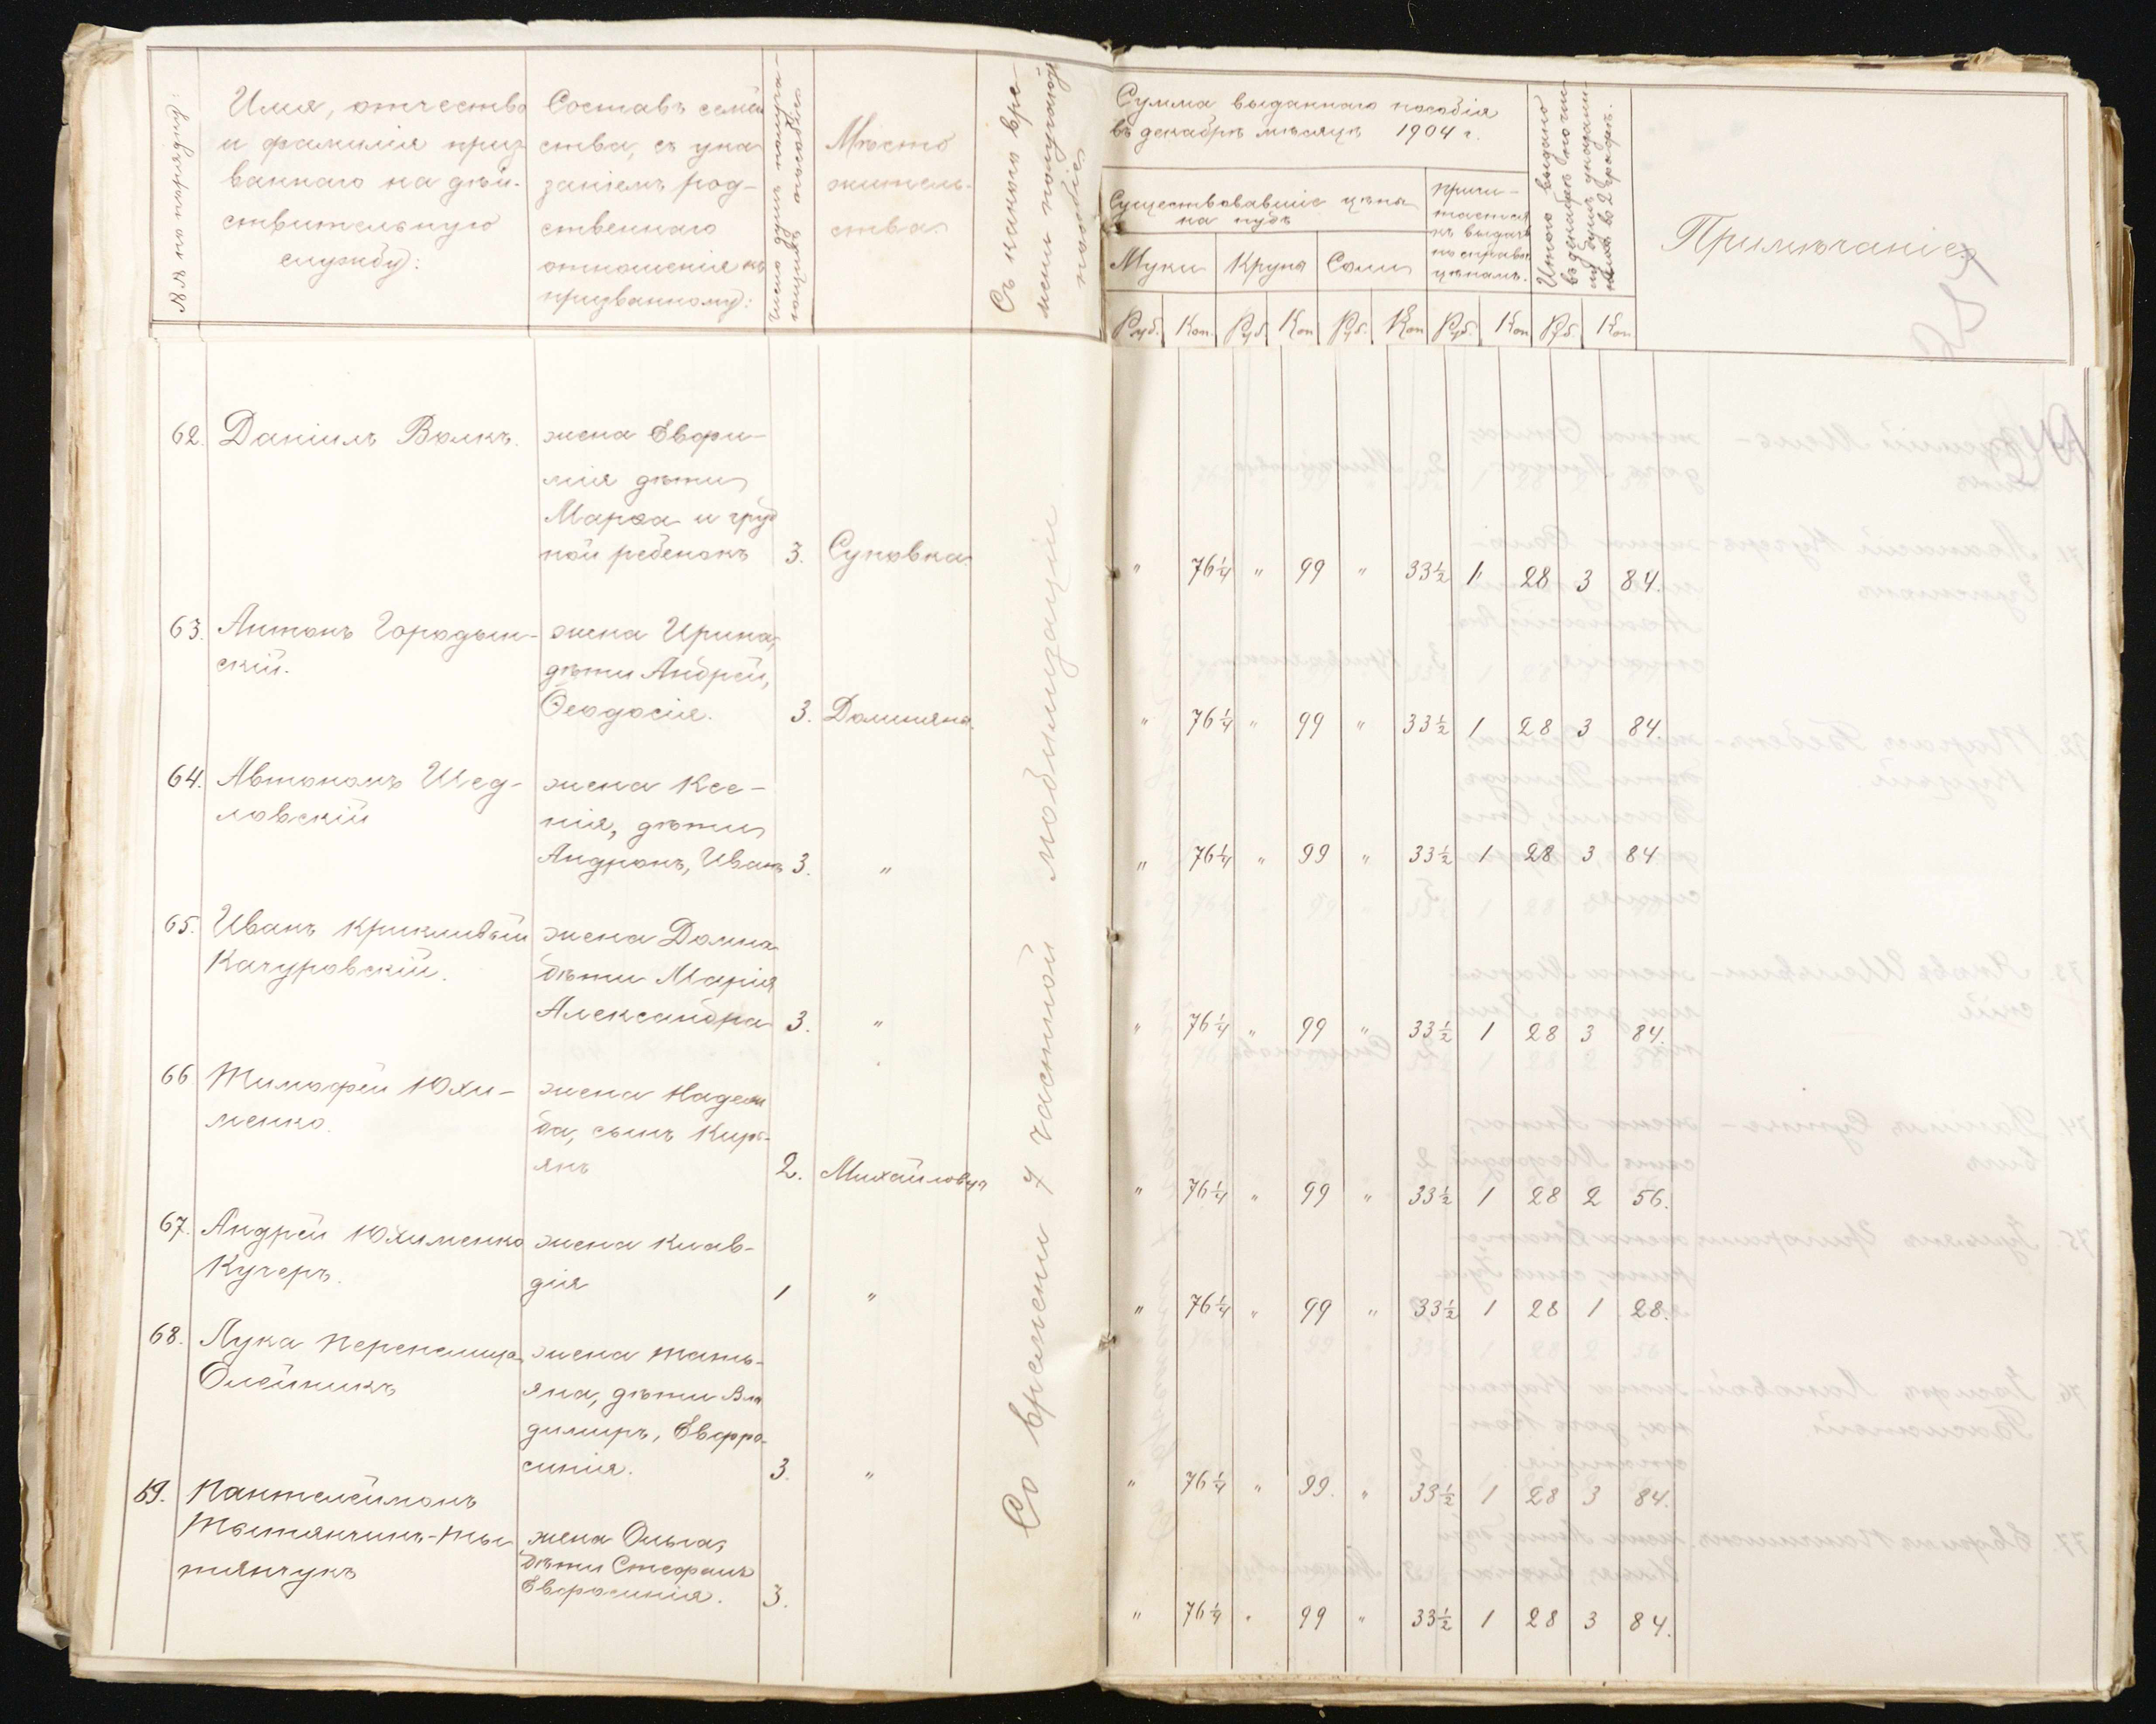 №№ по порядку:
Имя, отчество
и фамилія приз
ваннаго на дѣй-
ствительную
службу:
Составъ семей
ства, съ ука
заніемъ род-
ственнаго
отношенія къ
призванному:
Число душъ получа-
ющихъ пособіе
Мѣсто
житель-
ства
Съ какого вре-
мени получают
пособіе
Сумма выданнаго пособія
въ декабрѣ мѣсяцѣ 1904 г.
Существовавшіе цѣны
на пудъ
Муки Крупа Соли
Причи-
тается
къ выдачѣ
по справоч
цѣнамъ.
Итого выдано
въ декабрѣ
Примѣчаніе
Руб. Коп. Руб. Коп Руб. Коп Руб. Коп Руб. Коп.
62. Даніилъ Волкъ.
жена Евфи-
мія дѣти
Марѳа и груд
ной ребенокъ 3. Суповка
" 76¼ " 99 " 33½ 1 28 3 84.
63. Антонъ Городын-
скій.
жена Ирина,
дѣти Андрей,
Ѳеодосія. 3. Долиняна.
" 76¼ " 99 " 33½ 1 28 3 84.
64. Автономъ Шед-
ловскій
жена Ксе-
нія, дѣти
Андронъ, Иванъ 3. "
" 76¼ " 99 " 33½ 1 28 3 84
65. Иванъ Крикливый
Качуровскій.
жена Домна
дѣти Марія
Александра 3. "
" 76¼ " 99 " 33½ 1 28 3 84.
66 Тимофей Юхи-
менко.
жена Надеж
да, сынъ Кирь-
янъ 2. Михайловка
" 76¼ " 99 " 33½ 1 28 2 56.
67. Андрей Юхименко
Кучеръ.
жена Клав-
дія 1 "
" 76¼ " 99 " 33½ 1 28 1 28.
68. Лука Перепелица
Олейникъ
жена Тать-
яна, дѣти Вла
димиръ, Евфро-
синія. 3. "
" 76¼ " 99. " 33½ 1 28 3 84.
69. Пантелеймонъ
Тымянчинъ-Ты
мянчукъ
жена Ольга,
дѣти Стефанъ
Евфросинія. 3.
" 76¼ " 99 " 33½ 1 28 3 84.
Со времени 7 частной мобилизаціи